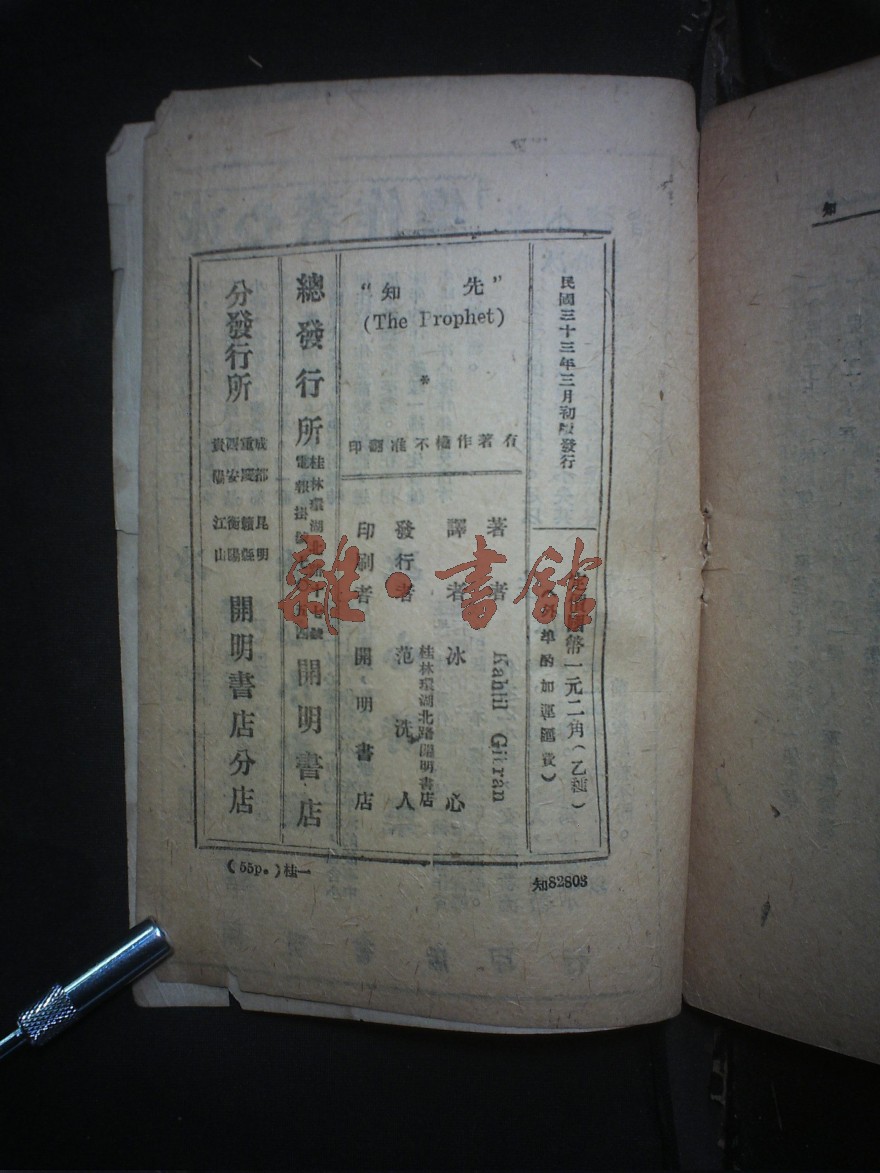 民國三十三年三月初版發行
幣一元二角（乙種）
酌加運匯費）
“先知”
(The Prophet)
有著作權不准翻印
著者 Kahlil Gibran
譯者 冰心
發行者 范洗人
桂林環湖北路開明書店
印刷者 開明書店
總發行所 開明書店
桂林環湖北路十七號
電報掛號
分發行所 開明書店分店
成都 昆明
重慶 贛縣
西安 衡陽
貴陽 江山
(55P.)桂一
知82803
雜·書館
知